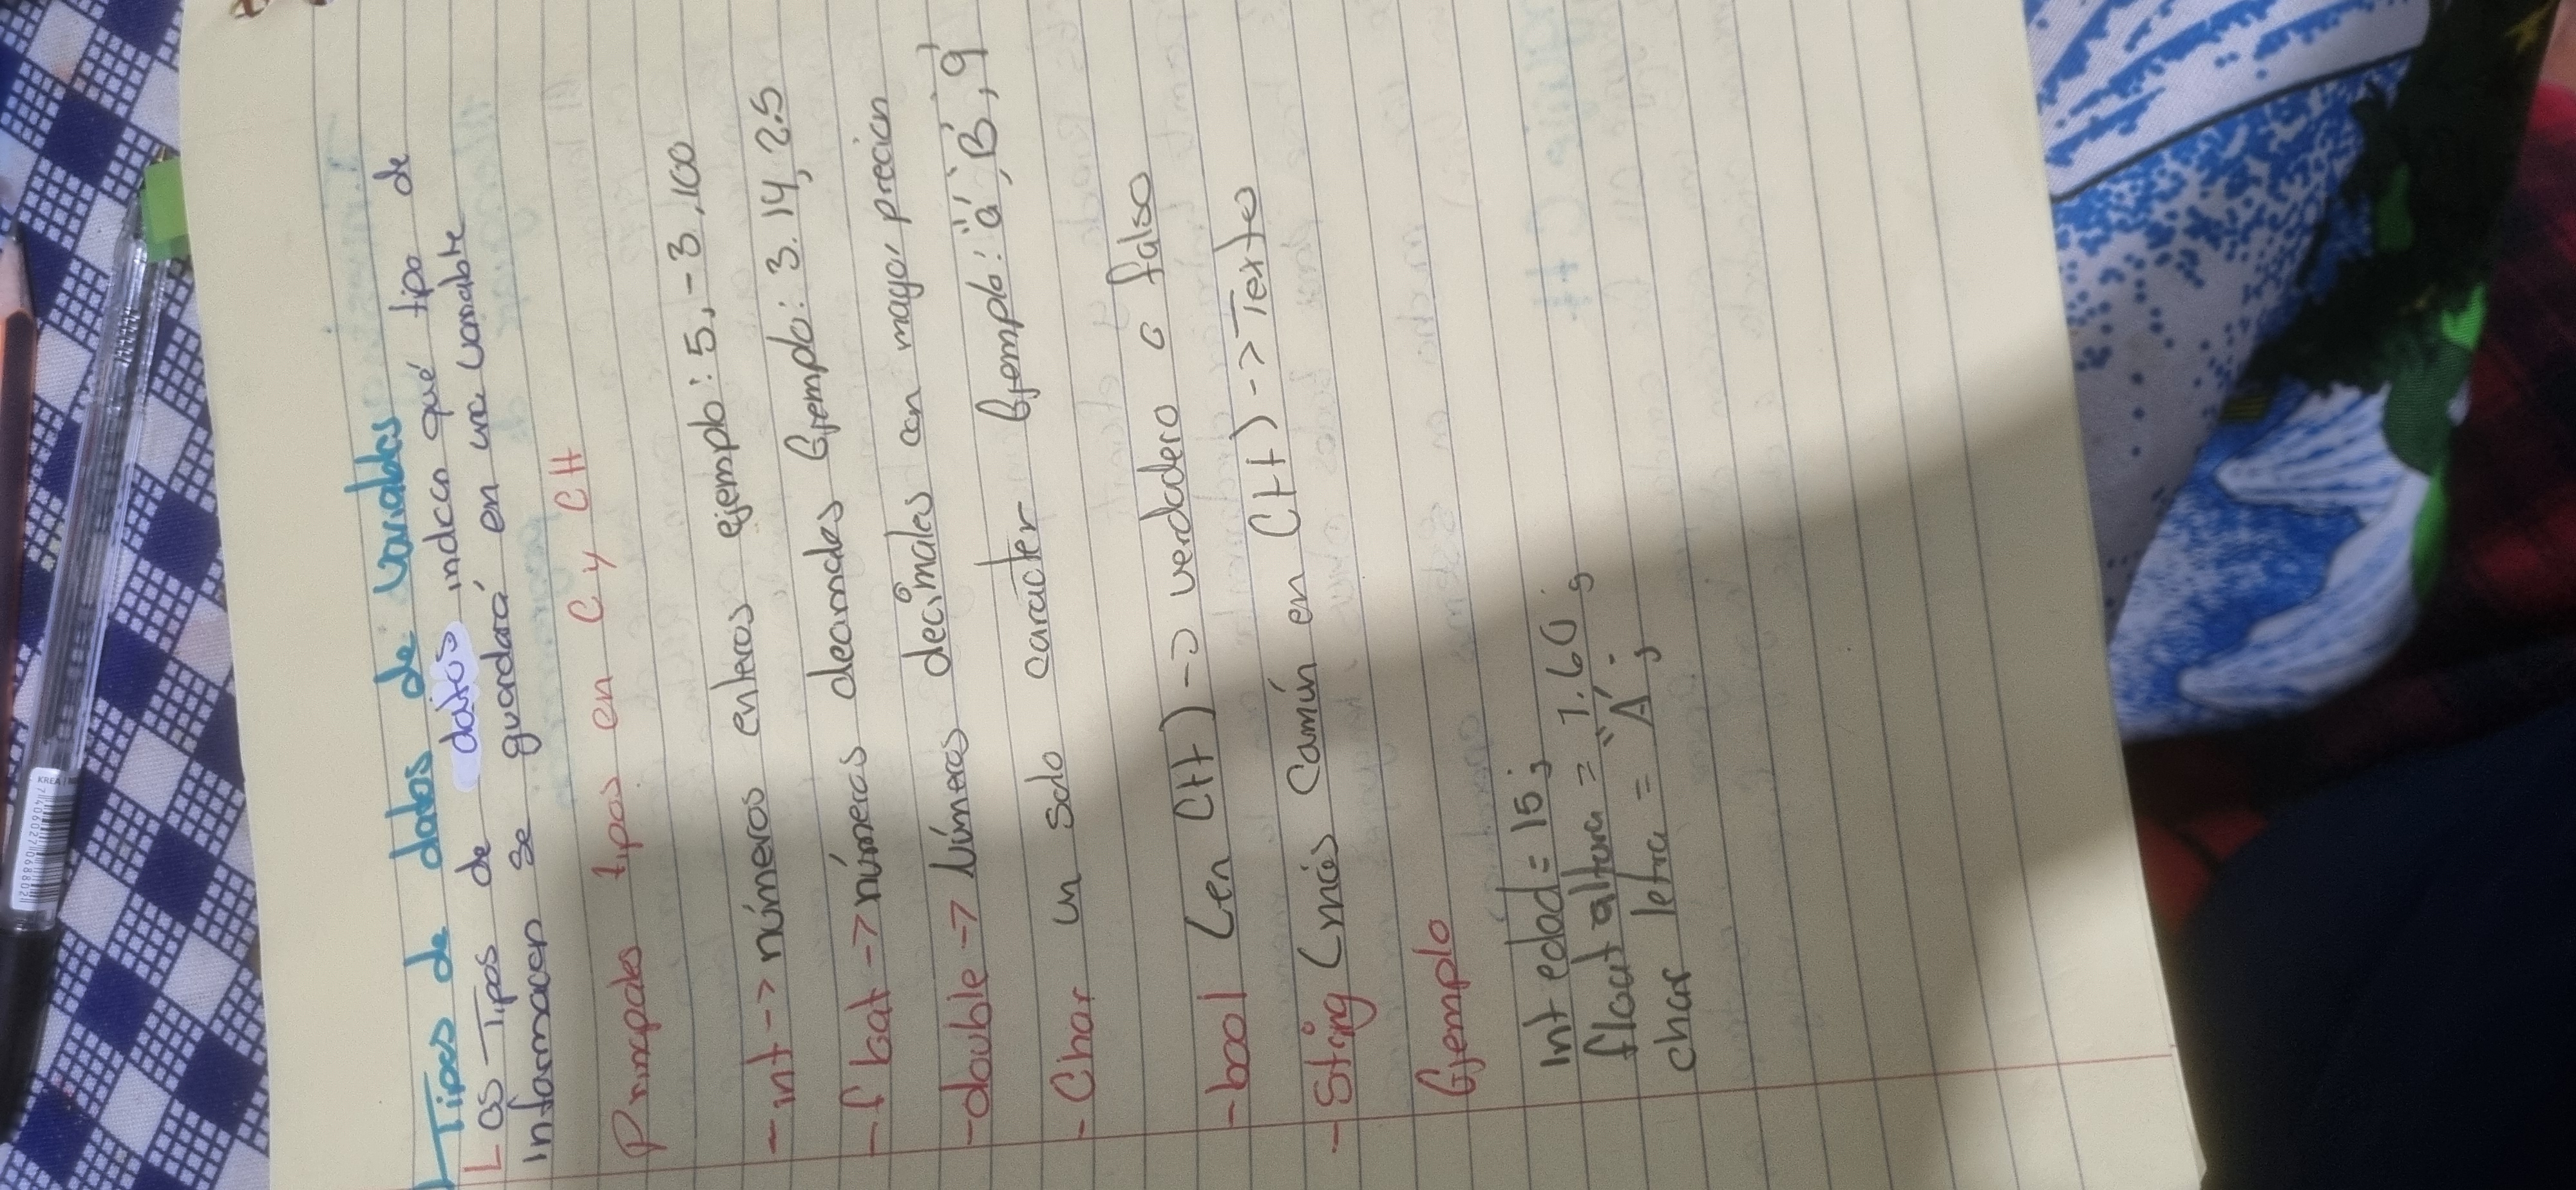 Tipos de datos de variables
Los Tipos de datos indican qué tipo de
información se guardará en una variable
Principales tipos en C y C++
- int -> números enteros ejemplo: 5, -3, 100
- float -> números decimales Ejemplo: 3.14, 2.5
- double -> Números decimales con mayor precion
- Char un solo caracter Ejemplo: 'a', 'B', '9'
- bool (en C++) -> verdadero o falso
- String (más común en C++) -> Texto
Ejemplo
int edad = 15;
float altura = 1.60;
char letra = "A";
KREA
7406027068802